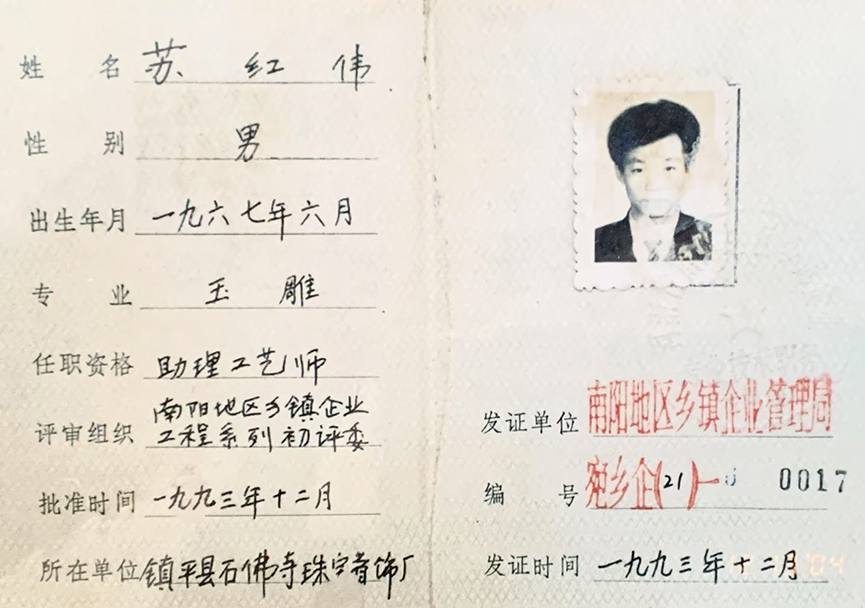 姓名 苏红伟
性别 男
出生年月 一九六七年六月
专业 玉雕
任职资格 助理工艺师
评审组织 南阳地区乡镇企业
工程系列初评委
批准时间 一九九三年十二月
所在单位 镇平县石佛寺珠宝首饰厂
发证单位 南阳地区乡镇企业管理局
编号 宛乡企(21)一 0017
发证时间 一九九三年十二月